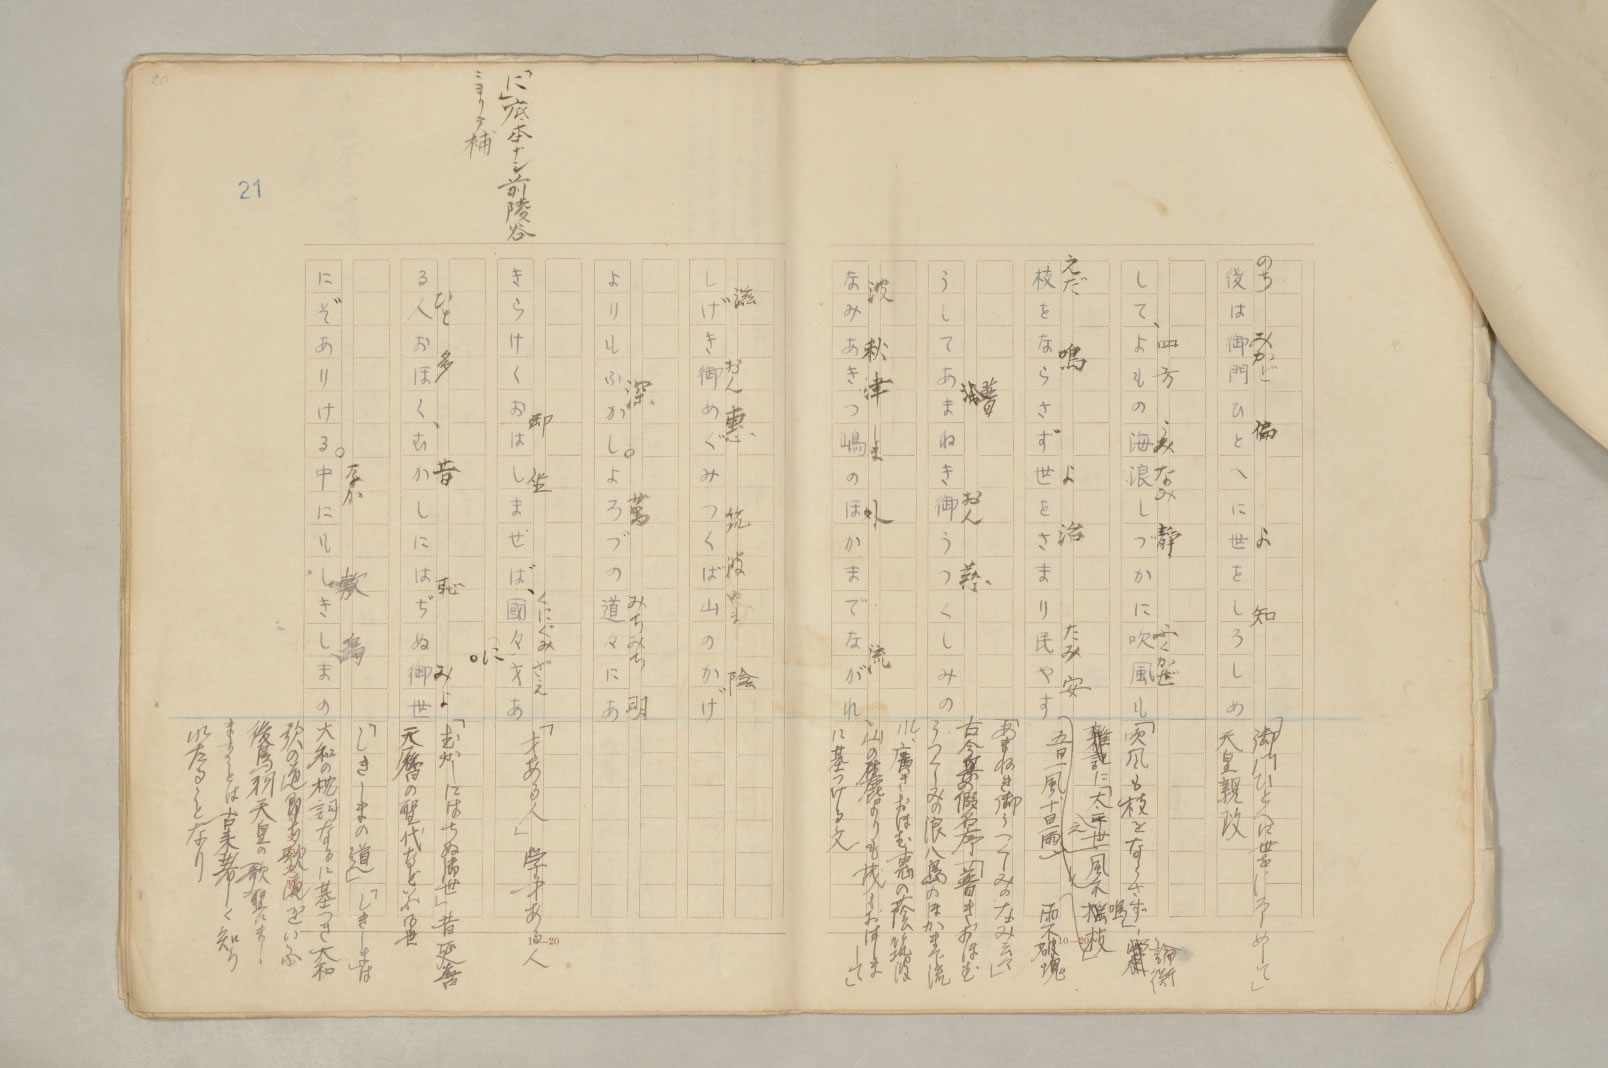 のち みかど 偏 よ 知
後は御門ひとへに世をしろしめ
四方 うみなみ 静
して、よもの海浪しづかに吹風も
えだ 鳴 よ 治 たみ 安
枝をならさず世をさまり民やす
普 おん 慈
うしてあまねき御うつくしみの
波 秋津しま 外 流
なみあきつ嶋のほかまでながれ
天皇親政
「吹風も枝をならさず」
論衡
雨不破塊
「あまねき御うつくしみのなみ云々」
古今集の假名序「普きおほむ
うつくしみの浪八島のほかまで流
れ、廣きおほむ惠の蔭筑波
山の麓よりも茂くおはしまして」
に基づける文
20
21
「に」底本ナシ前陵谷
ニヨリテ補
滋 おん 惠 筑波やま 陰
しげき御めぐみつくば山のかげ
深 萬 みちみち 明
よりもふかし。よろづの道々にあ
御 坐 くにぐみ ざえ
きらけくおはしませば、國々才あ
ひと 多 昔 恥 みよ
る人おほく、むかしにはぢぬ御世
に
なか 敷 島
にぞありける。中にもしきしまの
「才ある人」學才ある人
「むかしにはちぬ御世」昔延喜
天暦の聖代などいふ
「しきしまの道」「しきしま」は
大和の枕詞なるに基づき大和
歌の道
後鳥羽天皇の歌聖にまし
ますことは古来著しく知ら
れたることなり
10—20
10—20